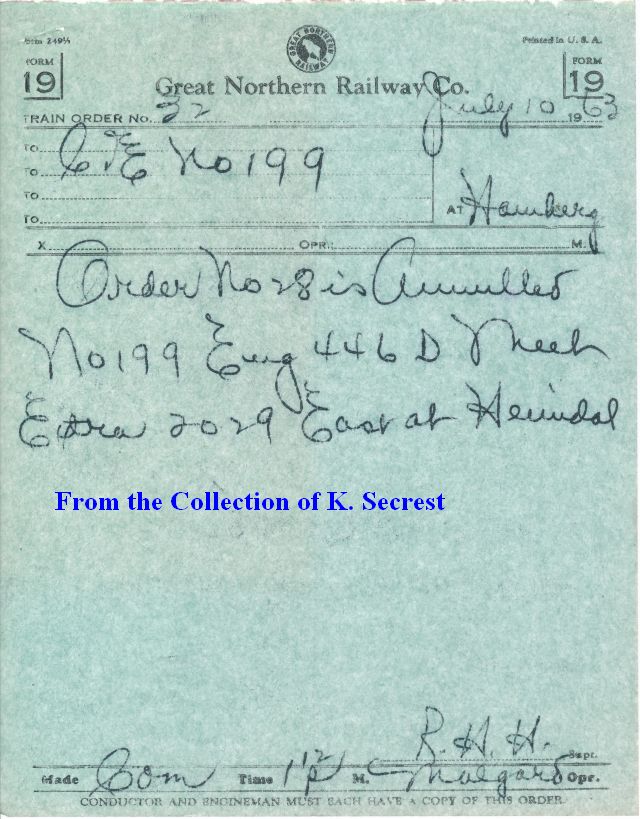 Form 249¼ Printed in U. S. A.
GREAT NORTHERN RAILWAY
FORM 19 FORM 19
Great Northern Railway Co.
TRAIN ORDER No. 32 July 10 1963
TO C&E No 199
TO
TO
TO
AT Hamberg
X OPR. M.
Order No 28 is Annulled
No 199 Eng 446 D Meet
Extra 2029 East at Heimdal
From the Collection of K. Secrest
R. H. H. Supt.
Made Com Time P M. Opr.
CONDUCTOR AND ENGINEMAN MUST EACH HAVE A COPY OF THIS ORDER